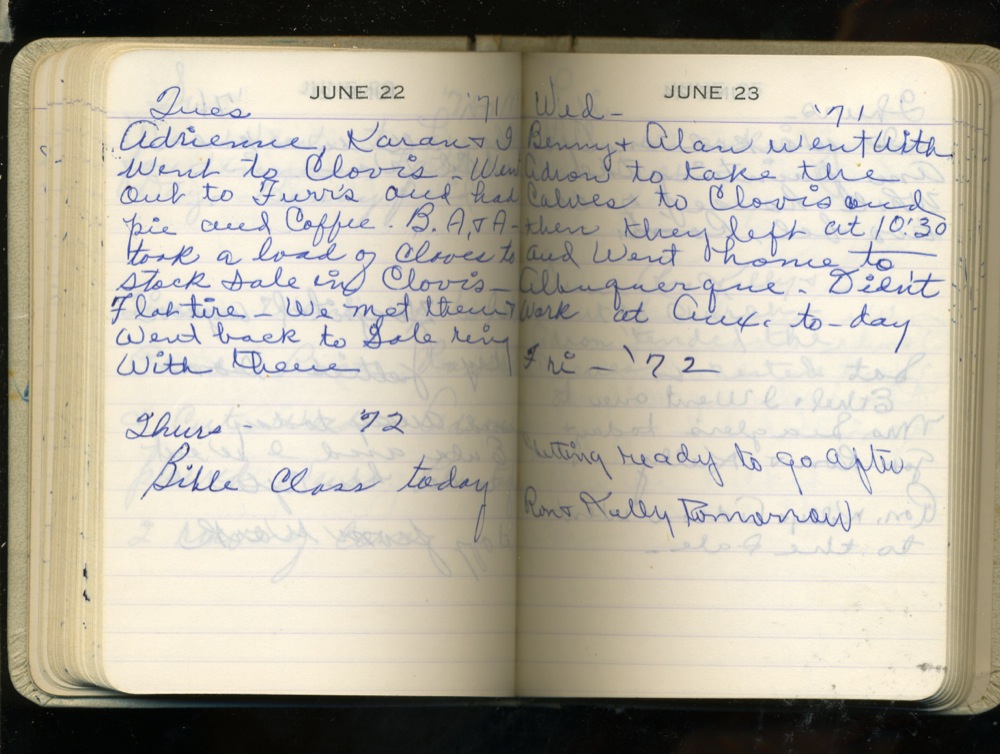 JUNE 22
Tues '71
Adrienne, Karan & I
Went to Clovis - Wen
out to Furr's and had
pie and Coffie. B. A, & A-
took a load of Cloves to
stock sale in Clovis-
Flat tire - We met them &
Went back to Sale ring
With them
Thurs - '72
Bible Class today
JUNE 23
Wed - '71
Benny & Alan went With
Adron to take the
Calves to Clovis and
then they left at 10:30
and Went home to
Albuquerque. Didn't
Work at Aux. to-day
Fri - '72
Getting ready to go after
Ron & Kelly Tomorrow